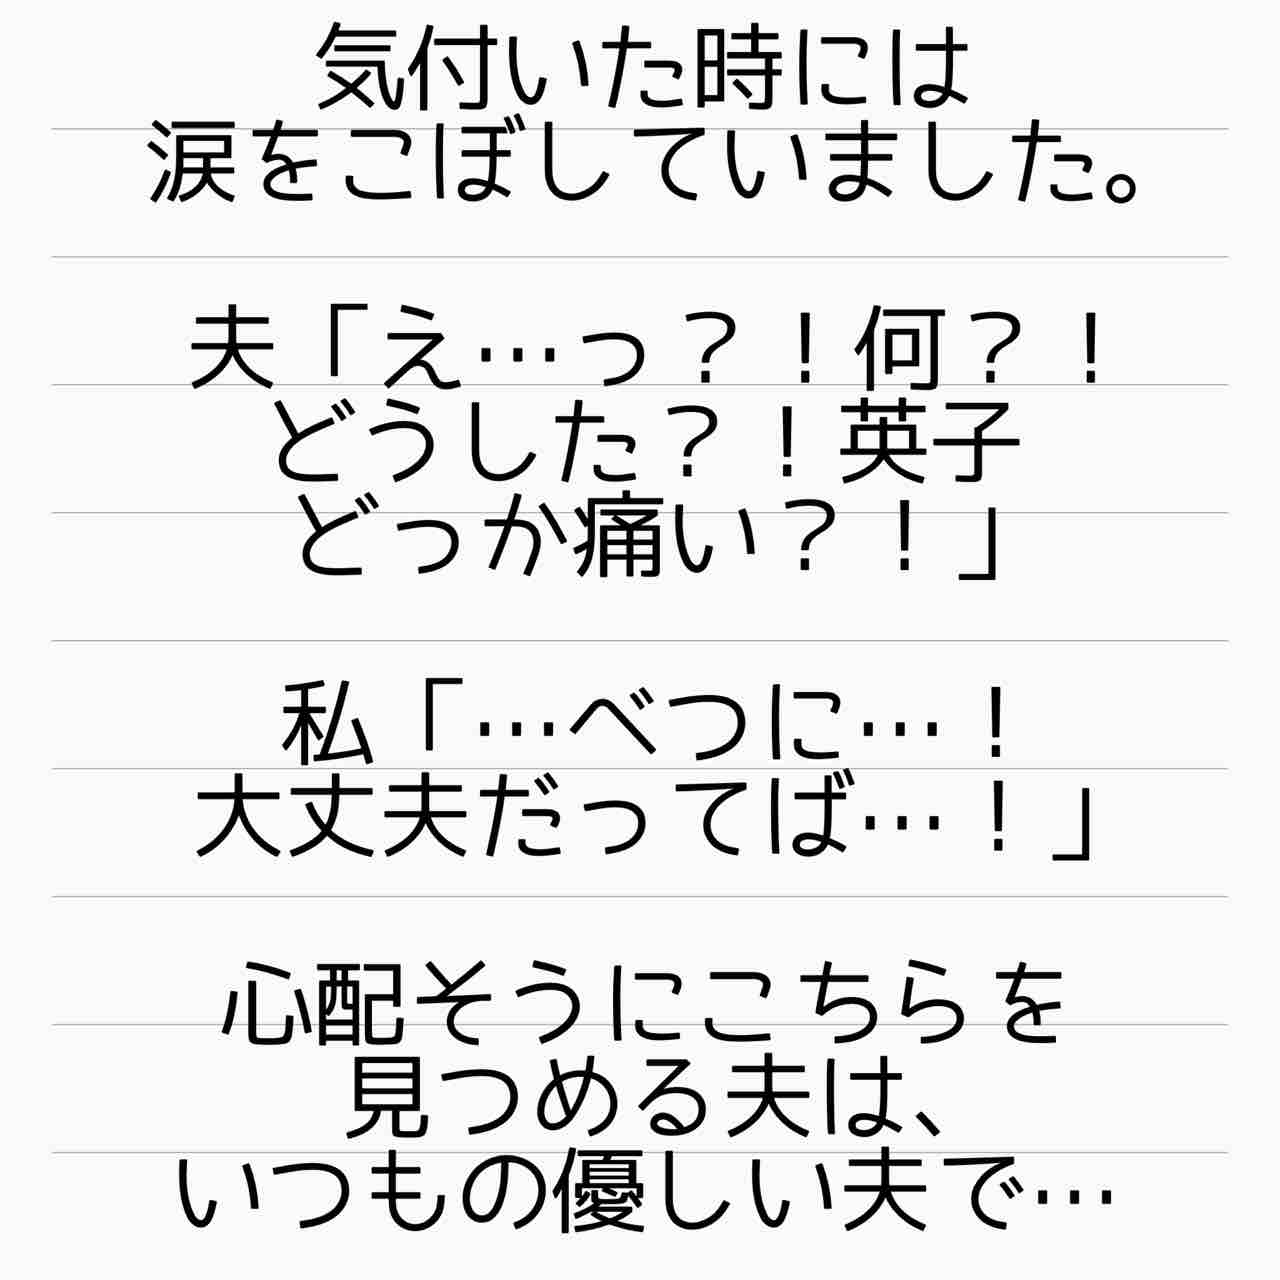 気付いた時には
涙をこぼしていました。
夫「え…っ？！何？！
どうした？！英子
どっか痛い？！」
私「…べつに…！
大丈夫だってば…！」
心配そうにこちらを
見つめる夫は、
いつもの優しい夫で…